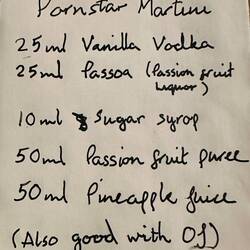 Pornstar Martini
25ml Vanilla Vodka
25ml Passoa (Passion fruit
Liquor)
10ml Sugar syrop
50ml Passion fruit puree
50ml Pineapple Juice
(Also good with OJ)